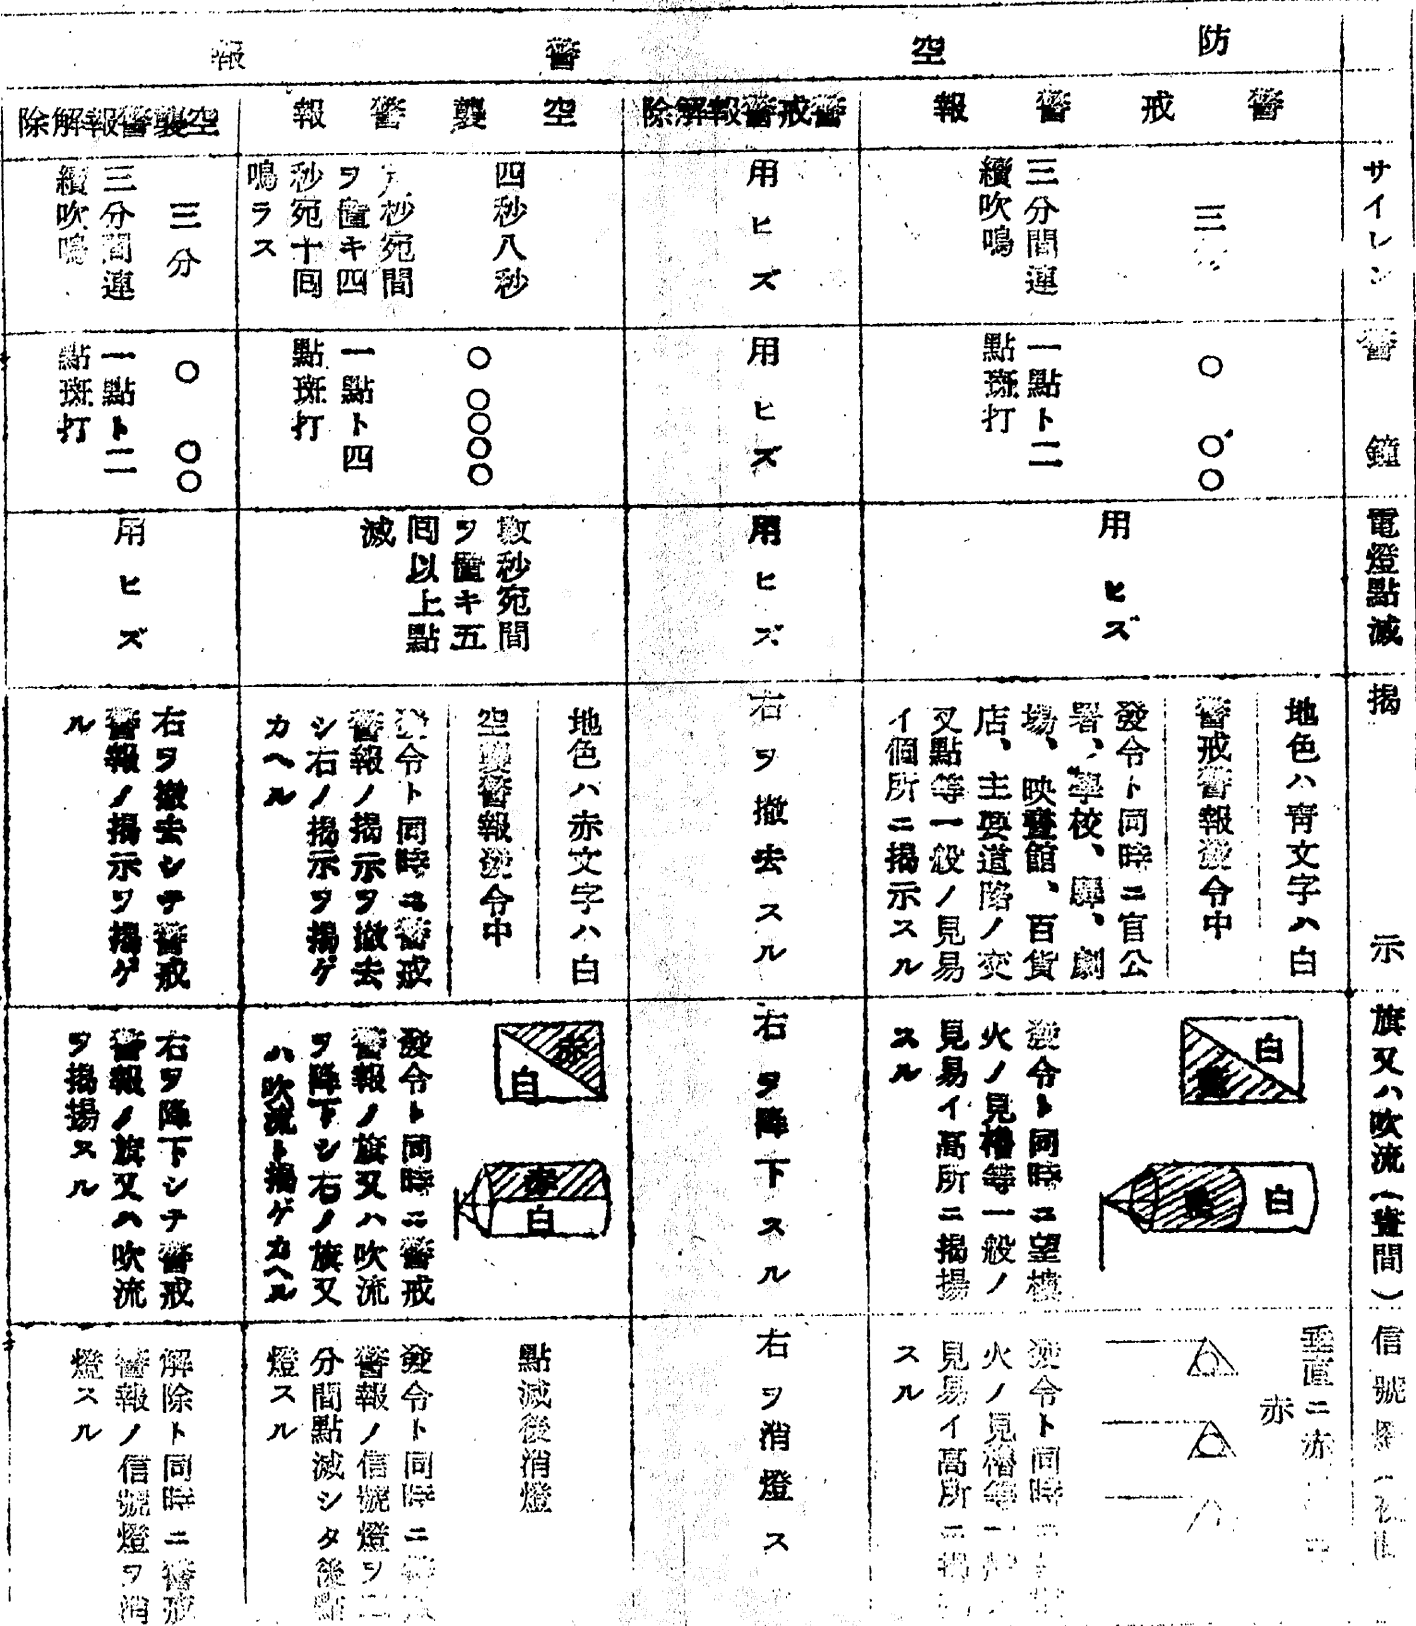 防空警報
警戒警報
警戒警報解除
空襲警報
空襲警報解除
サイレン
三
三分間連
續吹鳴
用ヒズ
四秒八秒
秒宛間
ヲ置キ四
秒宛十回
鳴ラス
三分
三分間連
續吹鳴
警鐘
○ ○○
一點ト二
點斑打
用ヒズ
○ ○○○○
一點ト四
點斑打
○ ○○
一點ト二
點斑打
電燈點滅
用ヒズ
用ヒズ
數秒宛間
ヲ置キ五
回以上點
滅
用ヒズ
揭示
地色ハ靑文字ハ白
警戒警報發令中
發令ト同時ニ官公
署、學校、驛、劇
場、映畫館、百貨
店、主要道路ノ交
叉點等一般ノ見易
イ個所ニ揭示スル
右ヲ撤去スル
地色ハ赤文字ハ白
空襲警報發令中
發令ト同時ニ警戒
警報ノ揭示ヲ撤去
シ右ノ揭示ヲ揚ゲ
カヘル
右ヲ撤去シテ警戒
警報ノ揭示ヲ揚ゲ
ル
旗又ハ吹流(晝間)
白
白
發令ト同時ニ望樓
火ノ見櫓等一般ノ
見易イ高所ニ揭揚
スル
右ヲ降下スル
赤
白
赤
白
發令ト同時ニ警戒
警報ノ旗又ハ吹流
ヲ降下シ右ノ旗又
ハ吹流ト揚ゲカヘル
右ヲ降下シテ警戒
警報ノ旗又ハ吹流
ヲ揭揚スル
信號
垂直ニ赤
赤
發令ト同時ニ
火ノ見櫓等一
見易イ高所ニ揭
スル
右ヲ消燈ス
點滅後消燈
發令ト同時ニ警
警報ノ信號燈ヲ
分間點滅シタ後
燈スル
解除ト同時ニ警戒
警報ノ信號燈ヲ消
燈スル